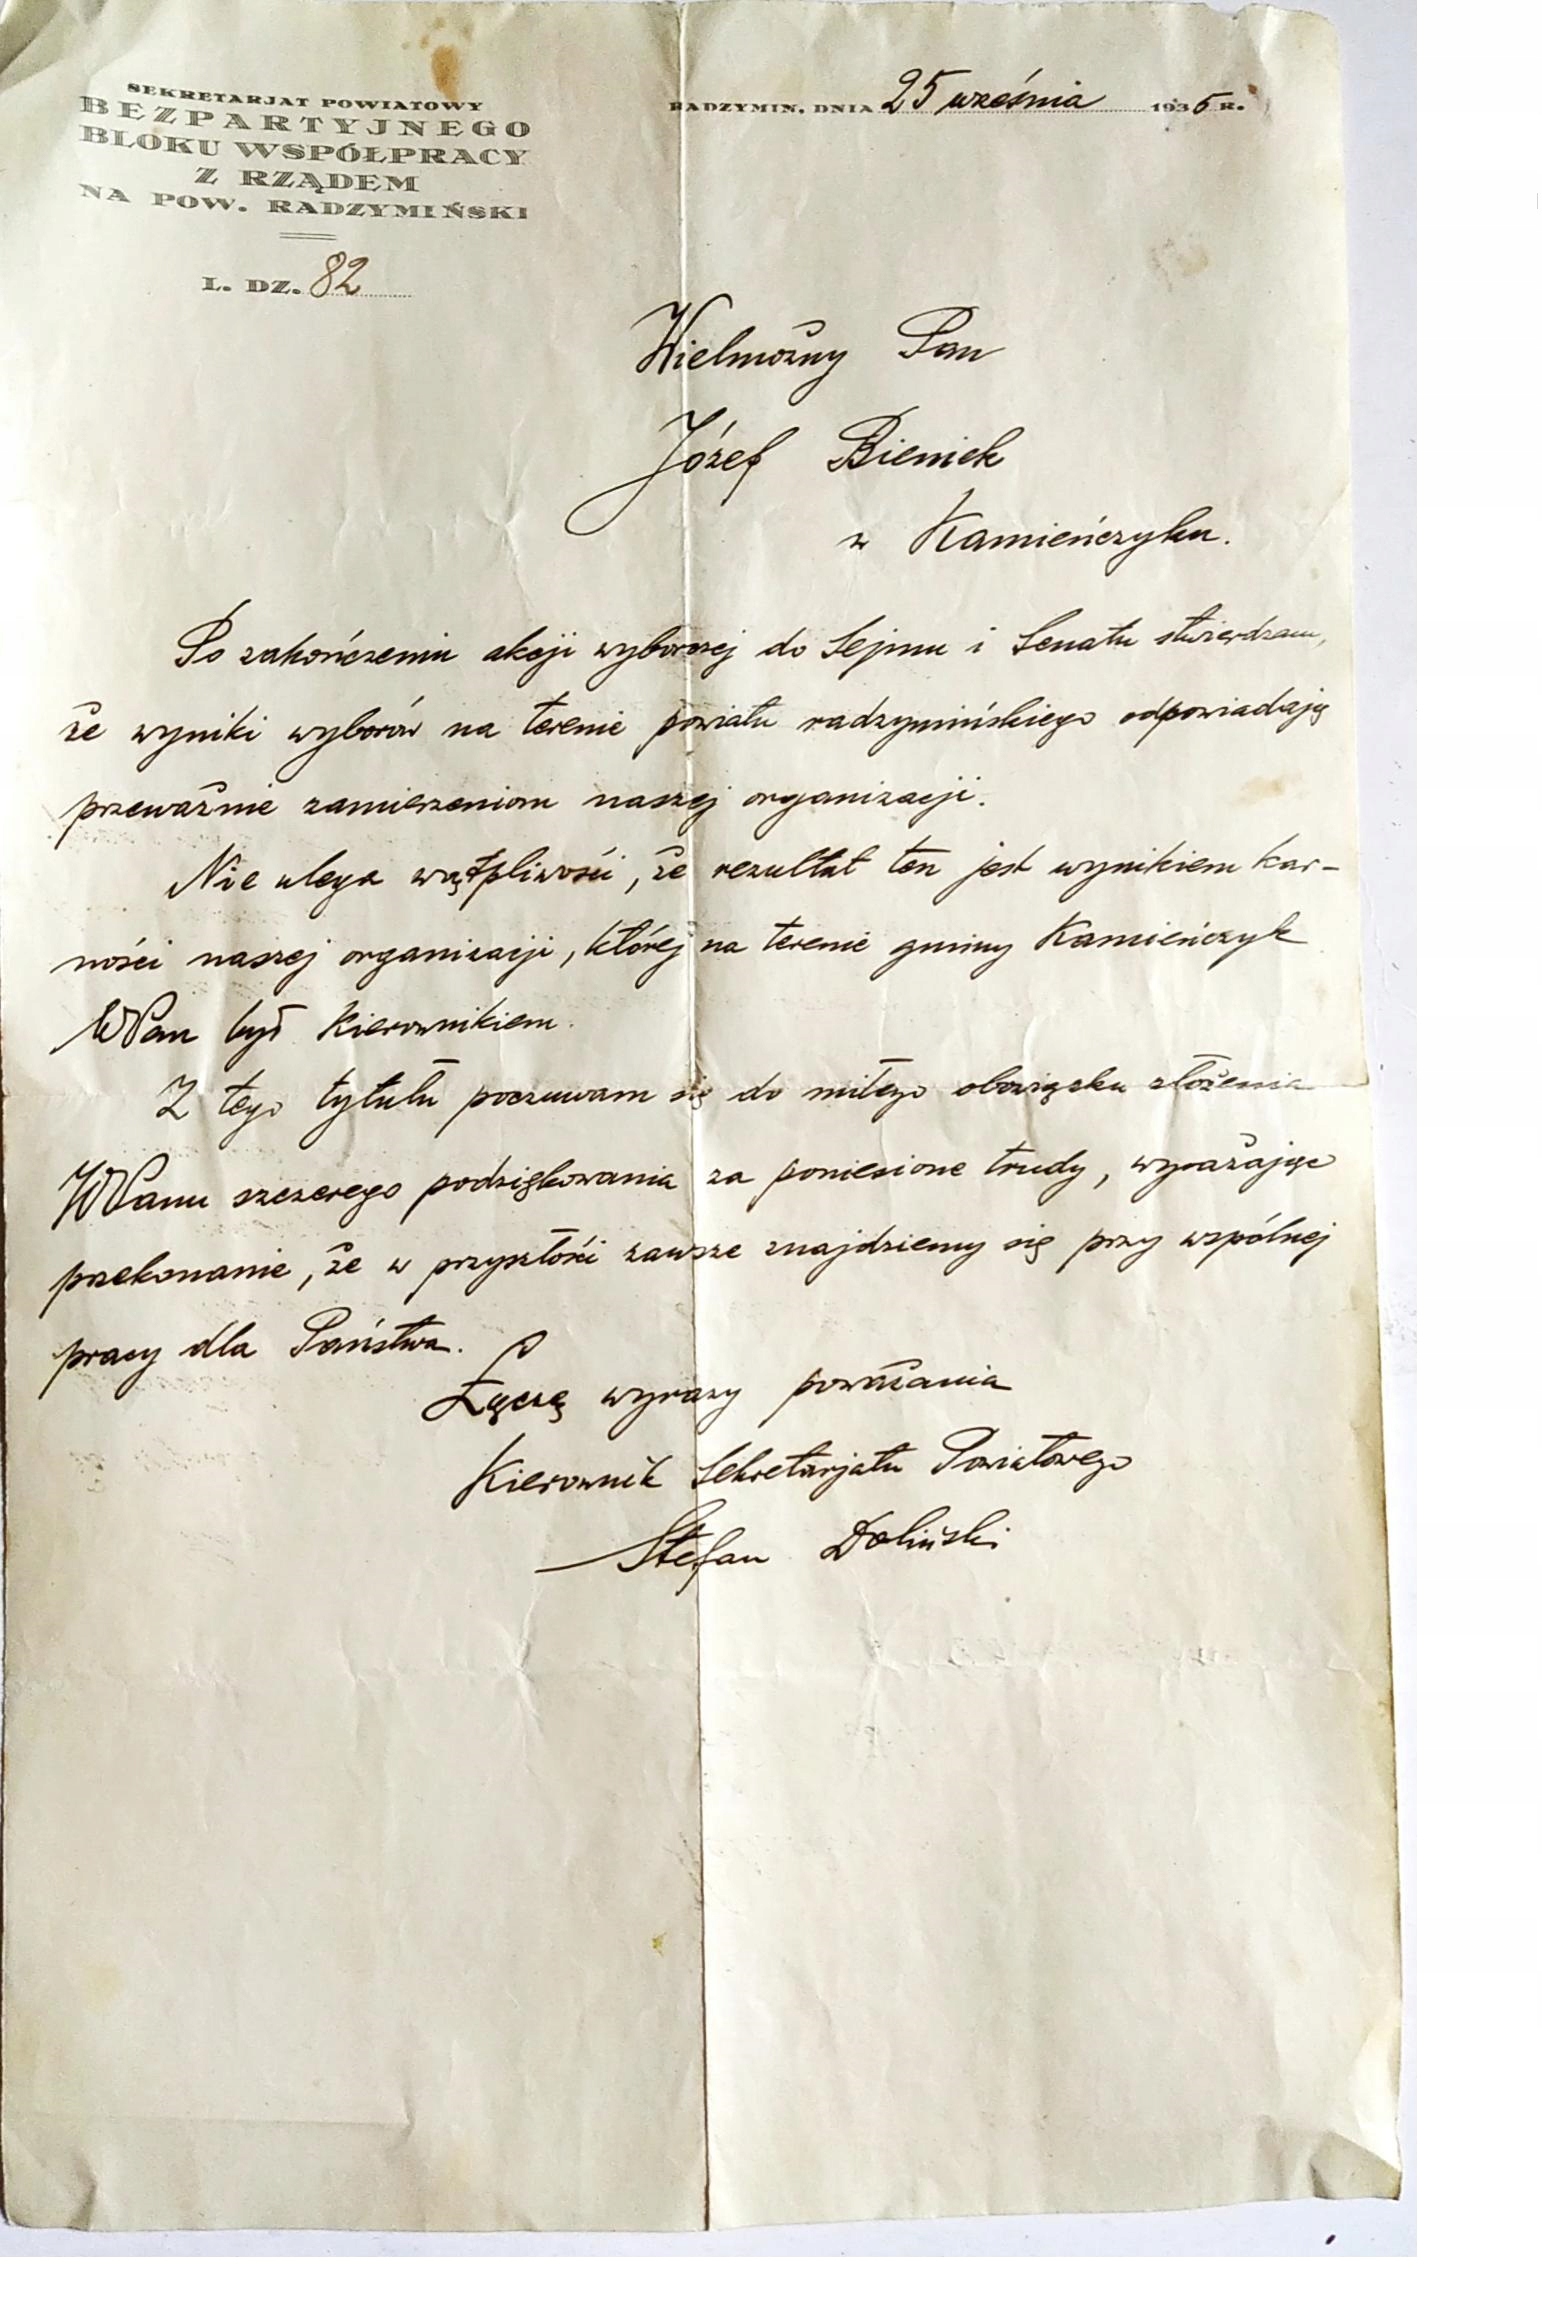 SEKRETARJAT POWIATOWY
BEZPARTYJNEGO
BLOKU WSPÓŁPRACY
Z RZĄDEM
NA POW. RADZYMIŃSKI
L. DZ. 82
RADZYMIN, DNIA 25 września 1935 R.
Wielmożny Pan
Józef Bieniek
w Kamieńczyku.
Po zakończeniu akcji wyborczej do Sejmu i Senatu stwierdzam,
że wyniki wyborów na terenie powiatu radzymińskiego odpowiadają
przeważnie zamierzeniom naszej organizacji.
Nie ulega wątpliwości, że rezultat ten jest wynikiem kar-
ności naszej organizacji, której na terenie gminy Kamieńczyk
WPan był kierownikiem.
Z tego tytułu poczuwam się do miłego obowiązku złożenia
WPanu szczerego podziękowania za poniesione trudy, wyrażając
przekonanie, że w przyszłości zawsze znajdziemy się przy wspólnej
pracy dla Państwa.
Łączę wyrazy poważania
Kierownik Sekretarjatu Powiatowego
Stefan Doliński